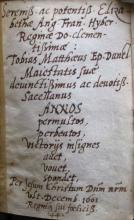 Sereniss. ac potentiss. Eliza
bethæ Ang. Fran. Hyber
Reginæ Do. clemen-
tissimæ:
Tobias Matthæus Ep. Dunel
Maiestatis suæ
devinctissimus ac devotiss.
Sacellanus
ANNOS
permultos,
perbeatos,
Victorijs insignes
adet,
vovet,
spondet,
Per Iesum Christum Dnm nrm
Decemb. 1601
Regni sui felicis